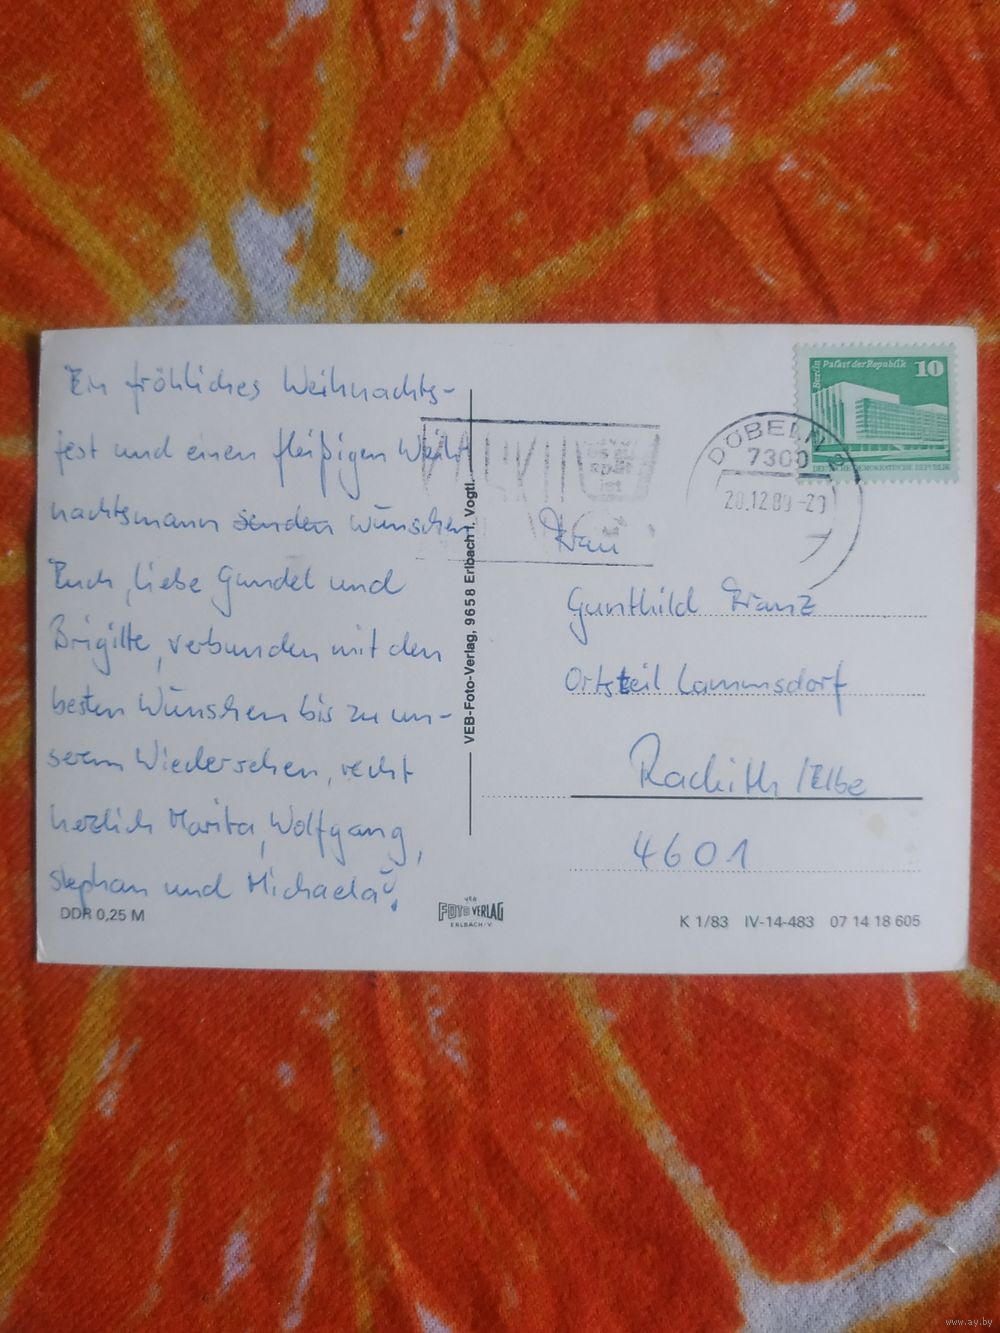 Ein fröhliches Weihnachts-
fest und einen fleißigen Weih
nachtsmann senden wünschen
Euch, liebe Gundel und
Brigitte, verbunden mit den
besten Wünschen bis zu un-
serem Wiedersehen, recht
herzlich Marita, Wolfgang,
Stephan und Michaela.
DDR 0,25 M
VEB-Foto-Verlag, 9658 Erlbach i. Vogtl.
VEB
FOTO VERLAG
ERLBACH/V.
Berlin
Palast der Republik 10
DEUTSCHE DEMOKRATISCHE REPUBLIK
DÖBELN 2
7300
20.12.89-20
Frau
Gunthild Franz
Ortsteil Lammsdorf
Rackith/Elbe
4601
K 1/83 IV-14-483 07 14 18 605
www.ay.by